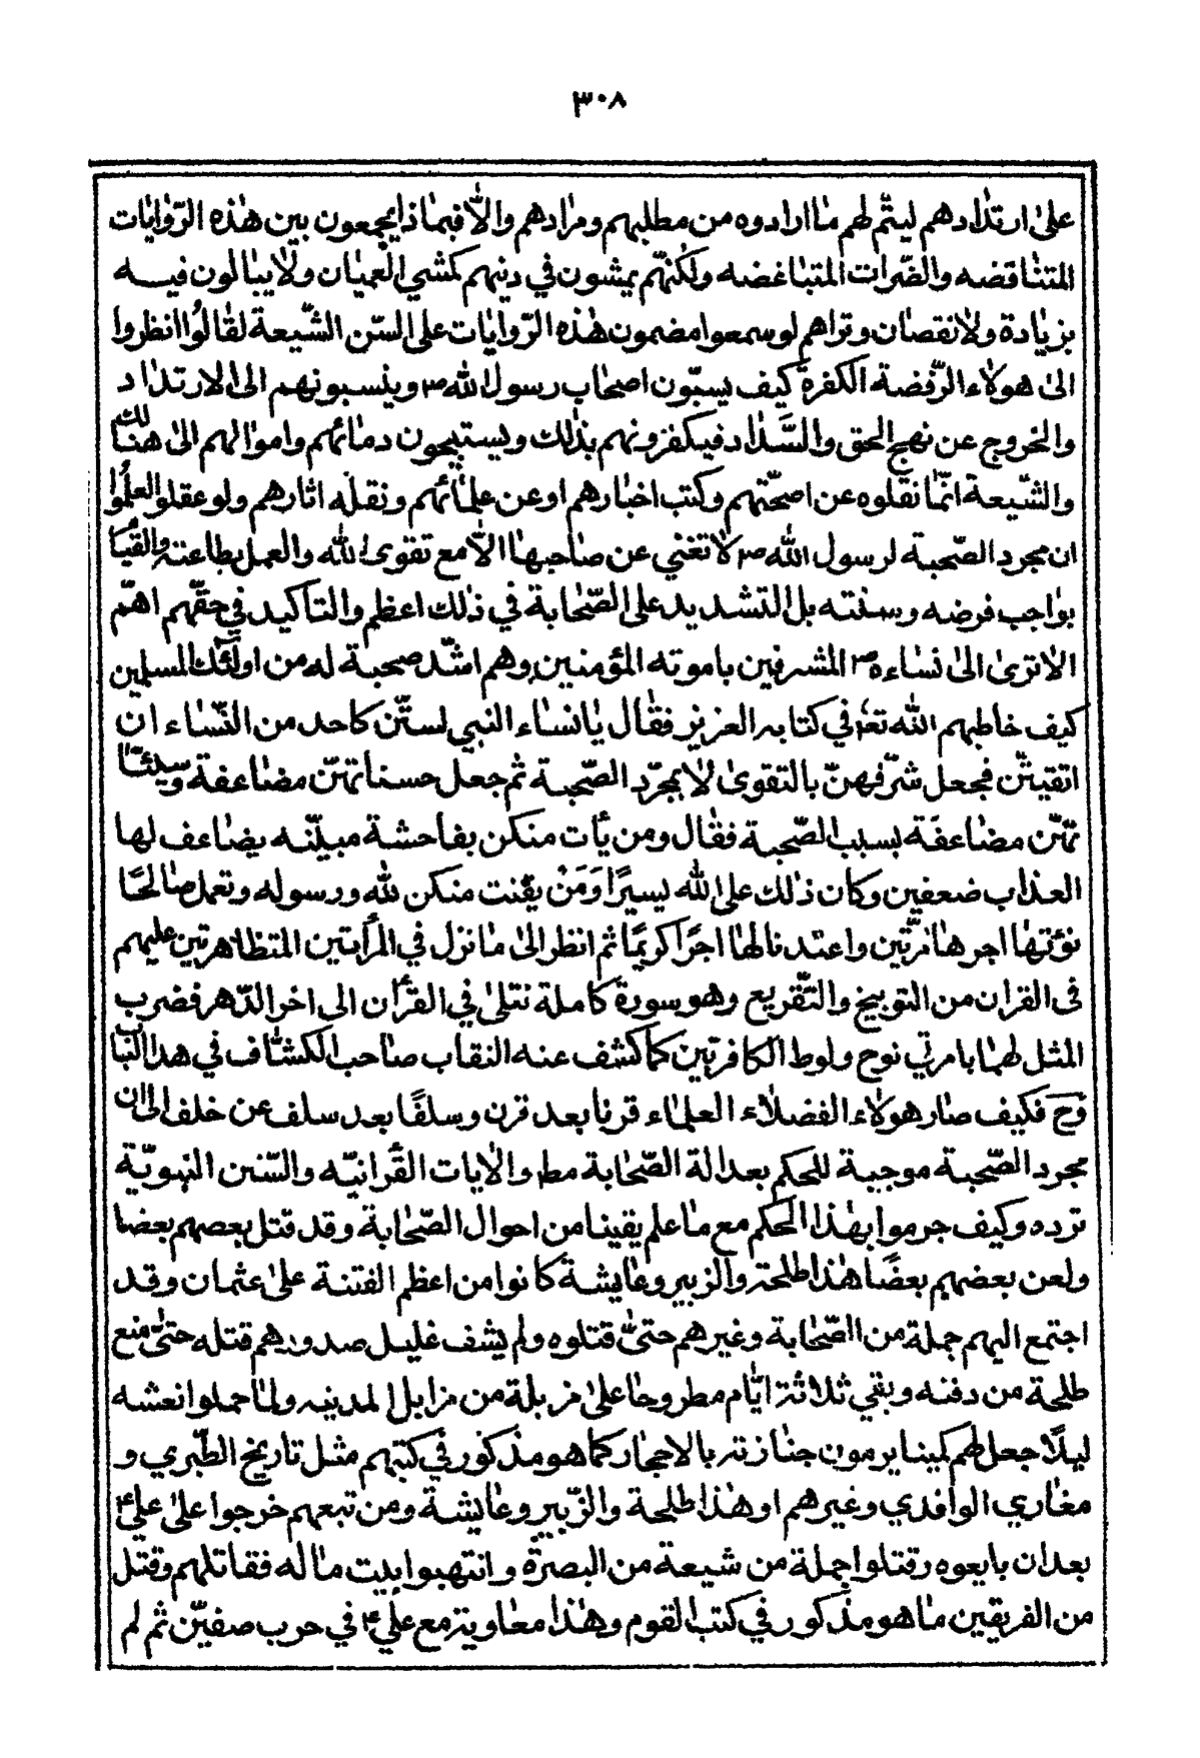 ٣٠٨
على ارتدادهم ليتمّ لهم ما ارادوه من مطلبهم ومرادهم والّا فبماذا يجمعون بين هذه الرّوايات
المتناقضه والضّرات المتباغضه ولكنّهم يمشون في دينهم كمشي العميان ولا يبالون فيه
بزيادة ولا نقصان وتراهم لو سمعوا مضمون هذه الرّوايات على السّن الشّيعة لقالُوا انظروا
الى هولاء الرّفضة الكفرة كيف يسبّون اصحاب رسول الله ص وينسبونهم الى الارتداد
والخروج عن نهج الحق والسَّداد فيكفرونهم بذلك ويستبيحون دمائهم واموالهم الى هنالك
والشّيعة انّما نقلوه عن اصحّتهم وكتب اخبارهم او عن علمائهم ونقله اثارهم ولو عقلو العلمُوا
ان مجرد الصّحبة لرسول الله ص لا تغني عن صاحبها الّا مع تقوى الله والعمل بطاعته والقيا
بواجب فرضه وسنته بل التشديد على الصّحابة في ذلك اعظم والتاكيد في حقّهم اهمّ
الا ترى الى نساءه ص المشرفين باموته المؤمنين وهم اشّد صحبة له من اولئك المسلمين
كيف خاطبهم الله تع في كتابه العزيز فقال يا نساء النبي لستّن كاحد من النّساء ان
اتقيتّن فجعل شرّفهنّ بالتقوى لا بمجرّد الصّحبة ثم جعل حسناتهنّ مضاعفة وسيئا
تهّن مضاعفَة بسبب الصّحبة فقال ومن يأت منكن بفاحشة مبيّنه يضاعف لها
العذاب ضعفين وكان ذلك على الله يسيرًا وَمَنْ يقنت منكن لله ورسوله وتعمل صالحًا
نؤتها اجرها مرّتين واعتدنا لها اجرًا كريمًا ثم انظر الى ما نزل في المرأتين المتظاهرتين عليهم
فى القران من التوبيخ والتّقريع وهو سورة كاملة نتلى في القرأن الى اخر الدّهر فضرب
المثل لهما بامرتي نوح ولوط الكافرتين كما كشف عنه النقاب صاحب الكشّاف في هذا البا
وَح فكيف صار هولاء الفضلاء العلماء قرنا بعد قرن وسلفًا بعد سلف عن خلف الى ان
مجرد الصّحبة موجبة للحكم بعدالة الصّحابة مط والايات القَرانيّه والسّنن النبويّة
تردده وكيف جرموا بهذا الحكم مع ما علم يقينا من احوال الصّحابة وقد قتل بعصهم بعضا
ولعن بعضهم بعضًا هذا طلحة والزبير وعايشة كانوا من اعظم الفتنة على عثمان وقد
اجتمع اليهم جملة من االصّحابة وغيرهم حتىّ قتلوه ولم يشف غليل صدورهم قتله حتىّ منع
طلحة من دفنه وبقي ثلاثة ايّام مطروحا على مزبلة من مزابل المدينه ولما حملوا نعشه
ليلًا جعل لهم كمينا يرمون جنازته بالاحجار كما هو مذكور في كتبهم مثل تاريخ الطّبري و
مغاري الوافدي وغيرهم او هذا طلحة والزّبير وعايشة ومن تبعهم خرجوا على علي ع
بعد ان بايعوه وقتلوا جملة من شيعة من البصرة وانتهبوا بيت ماله فقاتلهم وقتل
من الفريقين ما هو مذكور في كتب القوم وهذا معاوية مع علي ع في حرب صفيّن ثم لم